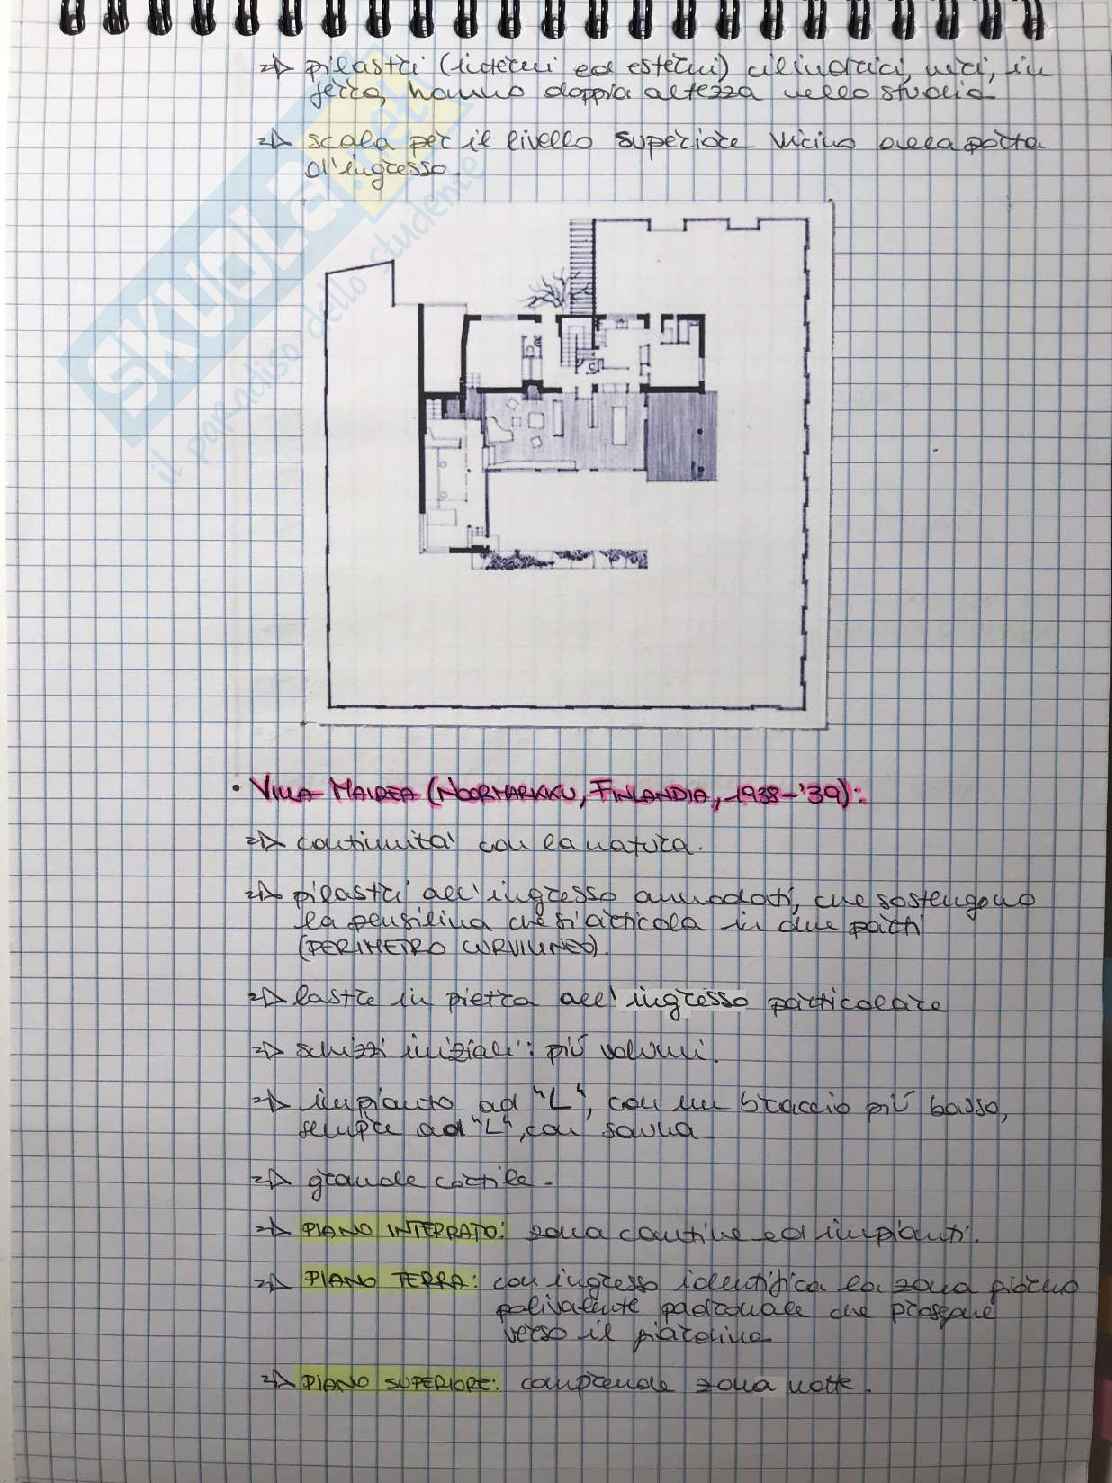 => pilastri (interni ed esterni) cilindrici, neri, in
ferro, hanno doppia altezza nello studio.
=> scala per il livello superiore vicino alla porta
d'ingresso.
SKUOLA.net
il paradiso dello studente
• VILLA MAIREA (NOORMARKKU, FINLANDIA, 1938-'39):
=> continuità con la natura.
=> pilastri all'ingresso annodati, che sostengono
la pensilina che si articola in due parti
(PERIMETRO CURVILINEO).
=> lastre in pietra all'ingresso particolare
=> schizzi iniziali: più volumi.
=> impianto ad "L", con un braccio più basso,
sempre ad "L", con sauna
=> grande cortile.
=> PIANO INTERRATO: zona cantine ed impianti.
=> PIANO TERRA: con ingresso identifica la zona giorno
polivalente padronale che prosegue
verso il giardino
=> PIANO SUPERIORE: comprende zona notte.